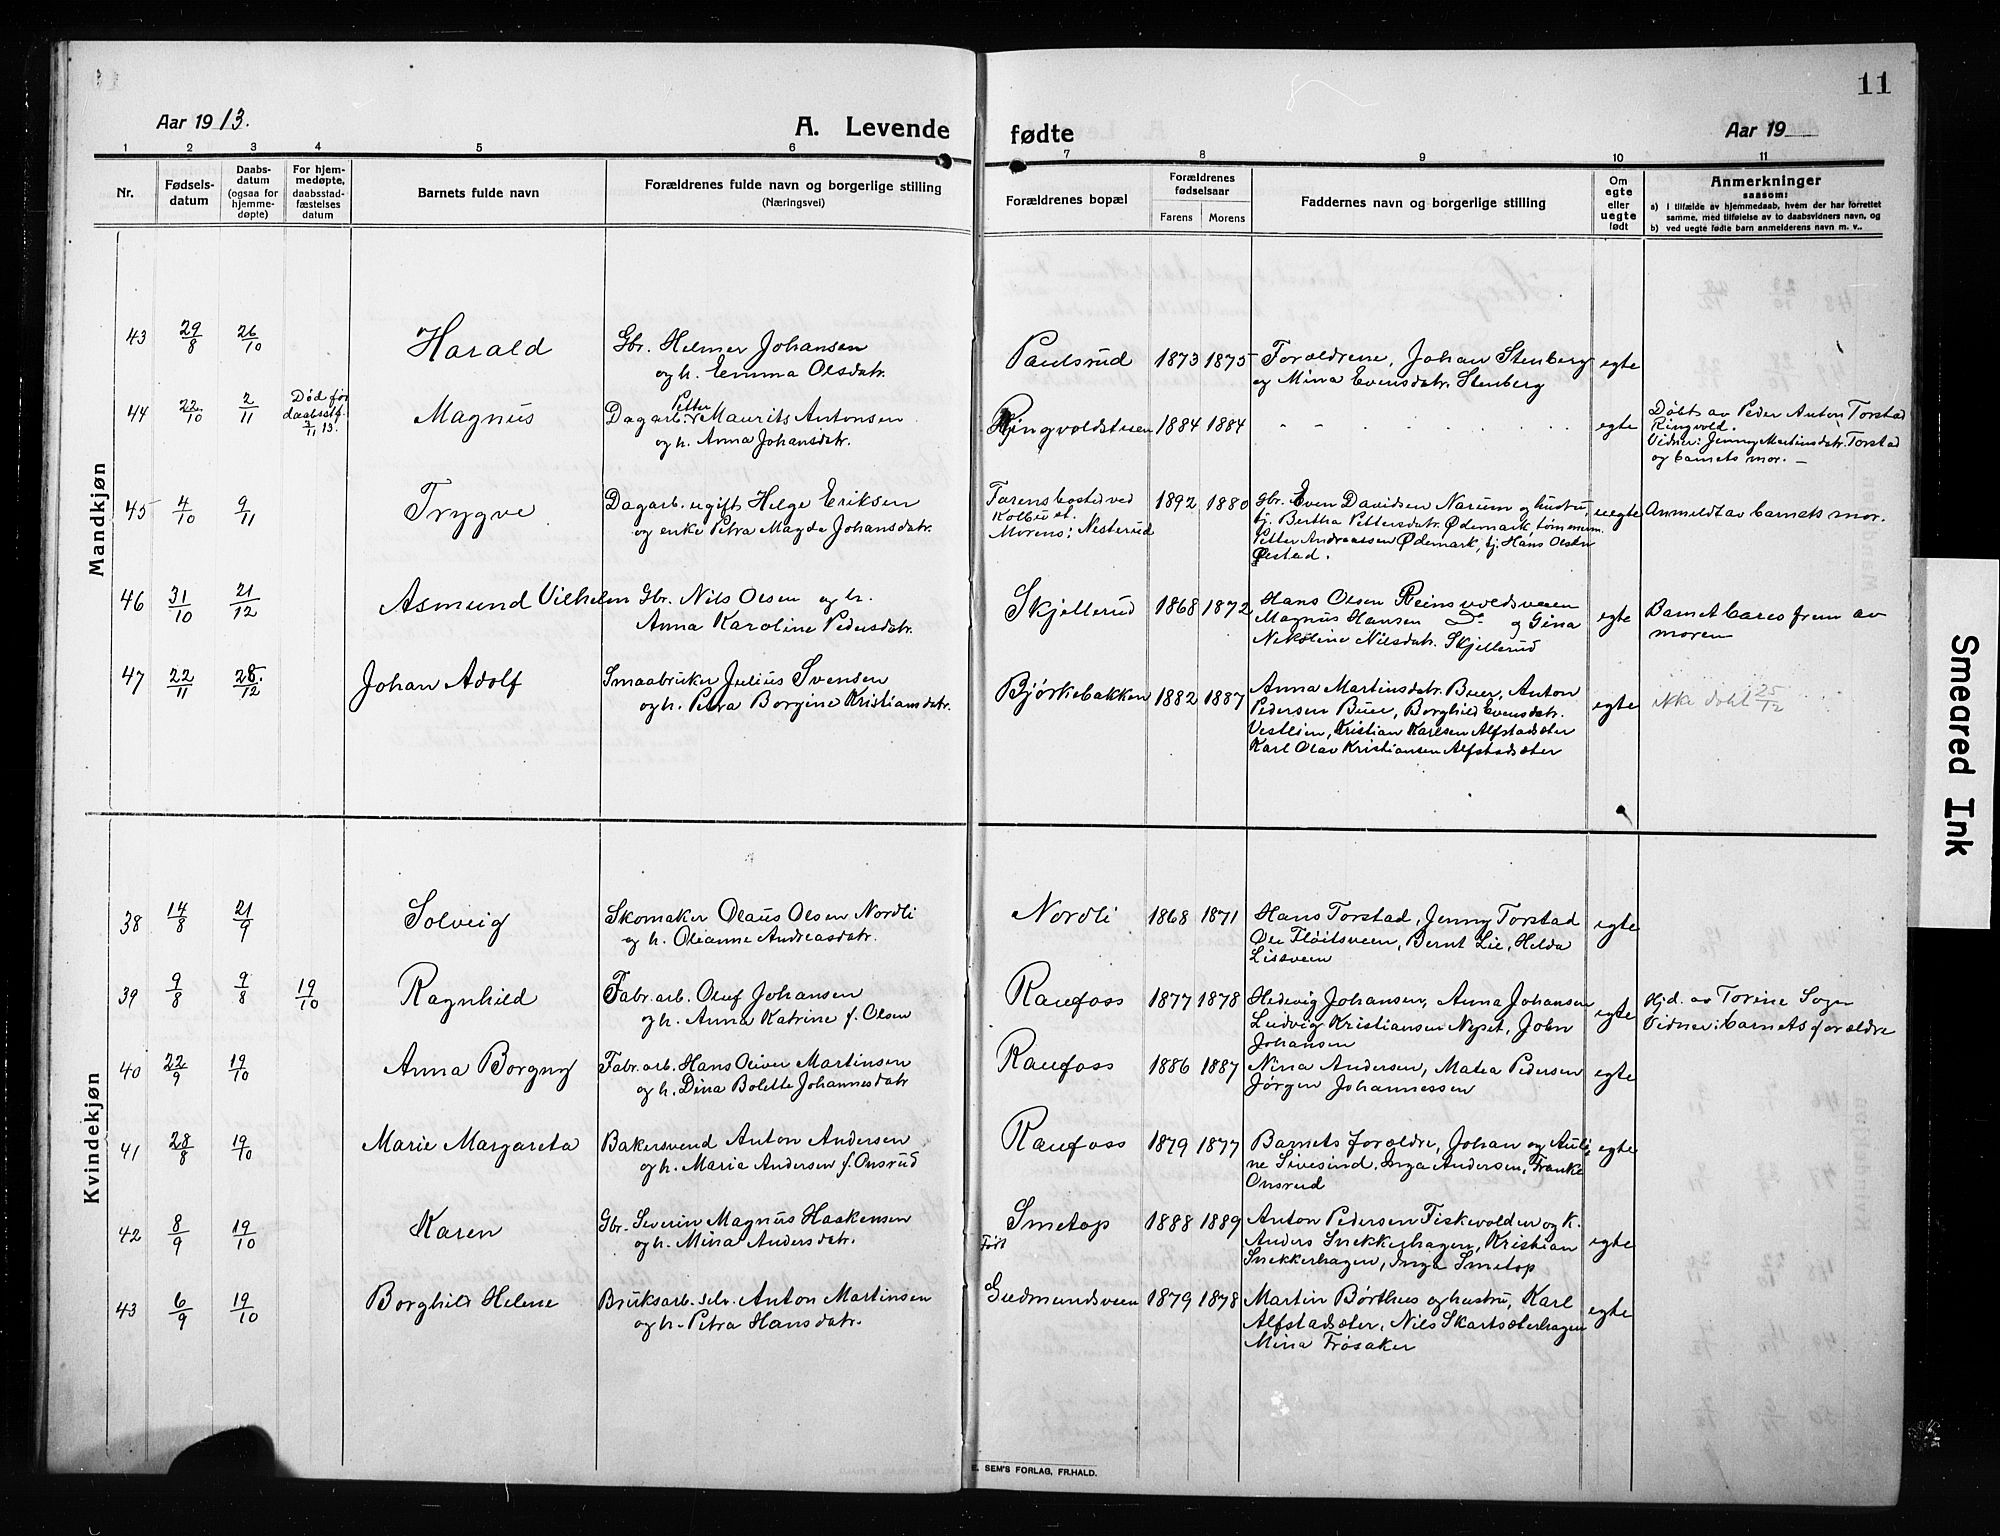 11
Aar 1913.
A. Levende
fødte
Aar 19
1 2 3 4 5 6 7 8 9 10 11
Nr.
Fødsels-
datum
Daabs-
datum
(ogsaa for
hjemme-
døpte)
For hjem-
medøpte,
daabsstad-
fæstelses
datum
Barnets fulde navn
Forældrenes fulde navn og borgerlige stilling
(Næringsvei)
Forældrenes bopæl
Forældrenes
fødselsaar
Farens Morens
Faddernes navn og borgerlige stilling
Om
egte
eller
uegte
født
Anmerkninger
saasom:
a) I tilfælde av hjemmedaab, hvem der har forrettet
samme, med tilføielse av to daabsvidners navn, og
b) ved uegte fødte barn anmelderens navn m. v..
Mandkjøn
43 29/8 26/10 Harald Gbr. Helmer Johansen
og h. Emma Olsdatr.
Paulsrud 1873 1875 Forældrene, Johan Stenberg
og Mina Evensdatr. Stenberg
egte
44 22/10 2/11 Død før
daabsstf.
3/11 13.
Magnus Dagarb. Petter Maurits Antonsen
og h. Anna Johansdatr.
Ringvoldstuen 1884 1884 - - - - egte
Døbt av Peder Anton Torstad
Ringvold.
Vidner: Jenny Martinsdatr. Torstad
og barnets mor. -
45 4/10 9/11 Trygve Dagarb. ugift Helge Eriksen
og enke Petra Magda Johansdatr.
Farens bosted ved
Kolbu st.
Morens: Nesterud
1892 1880 Gbr. Even Davidsen Narum og hustru,
tj. Bertha Pettersdatr. Ødemark, tømmerm.
Petter Andreassen Ødemark, tj. Hans Olsen
Østad.
uegte Anmeldt av barnets mor.
46 31/10 21/12 Asmund Vilhelm Gbr. Nils Olsen og h.
Anna Karoline Pedersdatr.
Skjellerud 1868 1872 Hans Olsen Reinsvoldsveien
Magnus Hansen do og Gina
Nekoline Nilsdatr. Skjellerud
egte Barnet bares frem av
moren
47 22/11 28/12 Johan Adolf Smaabruker Julius Svensen
og h. Petra Borgine Kristiansdatr.
Bjørkebakken 1882 1887 Anna Martinsdatr. Buer, Anton
Pedersen Buer, Borghild Evensdatr.
Vestlien, Kristian Karlsen Alfstadsæter
Karl Olav Kristiansen Alfstadsæter
egte ikke døbt 25/12
Kvindekjøn
38 14/8 21/9 Solveig Skomaker Olaus Olsen Nordli
og h. Olianne Andreasdatr.
Nordli 1868 1871 Hans Torstad, Jenny Torstad
Ole Fløitsveen, Bernt Lie, Helda
Lissveen
egte
39 9/8 9/8 19/10 Ragnhild Fabr. arb. Oluf Johansen
og h. Anna Katrine f. Olsen
Raufoss 1877 1878 Hedevig Johansen, Anna Johansen
Ludvig Kristiansen Nyset, John
Johansen
egte Hjd. av Torine Sogn
Vidner: barnets forældre
40 22/9 19/10 Anna Borgny Fabr. arb. Hans Oliver Martinsen
og h. Dina Bolette Johannesdatr
Raufoss 1886 1887 Nina Andersen, Matea Pedersen
Jørgen Johannessen
egte
41 28/8 19/10 Marie Margareta Bakersvend Anton Andersen
og h. Maria Andersen f. Onsrud
Raufoss 1879 1877 Barnets forældre, Johan og Auli-
ne Sivesind, Inga Andersen, Franke
Onsrud
egte
42 8/9 19/10 Karen Gbr. Severin Magnus Haakensen
og h. Mina Andersdatr.
Smetop 1888 1889 Anton Pedersen Fiskevolden og k.
Anders Snekkerhagen, Kristian
Snekkerhagen, Inga Smetop
egte
Født
43 6/9 19/10 Borghild Helene Bruksarb. selv. Anton Martinsen
og h. Petra Hansdatr.
Gudmundsveen 1879 1878 Martin Børthus og hustru, Karl
Alfstadsæter, Nils Skartsæterhagen
Mina Frøsaker
egte
E. SEM'S FORLAG, FR.HALD.
Smeared Ink